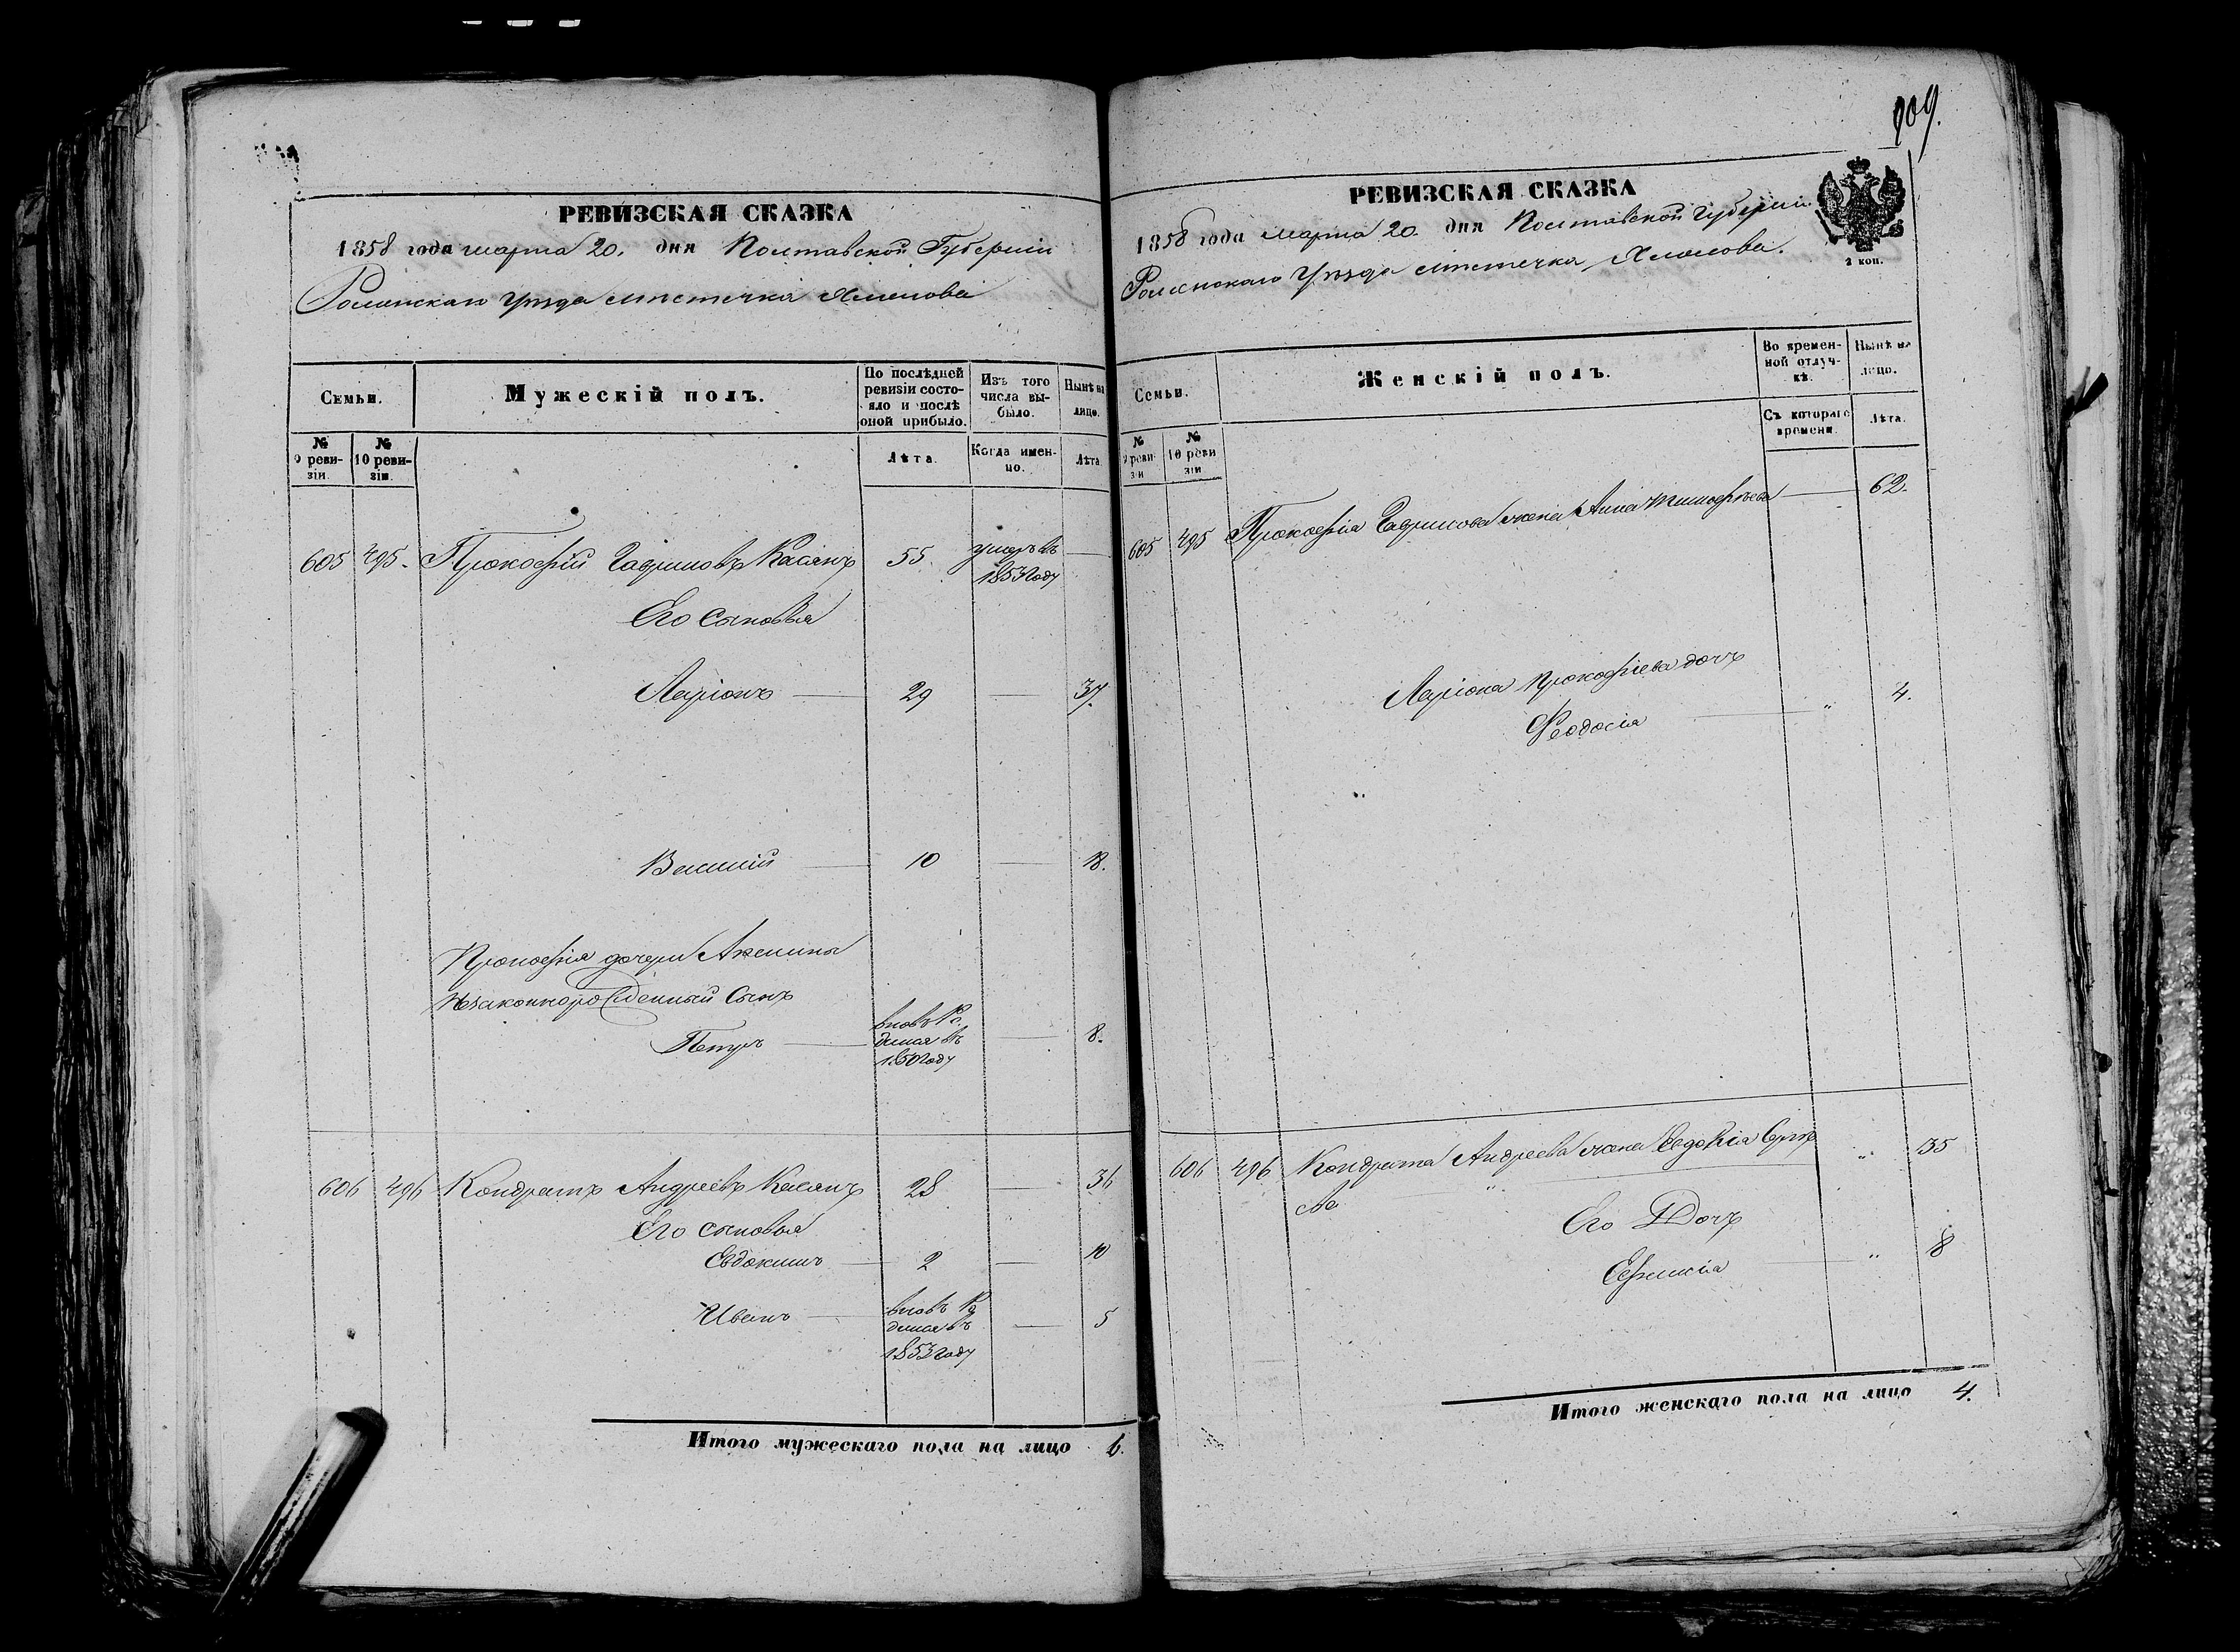 РЕВИЗСКАЯ СКАЗКА
1858 года марта 20. дня Полтавской Губерніи
Роменскаго Уѣзда мѣстечка Смелова
Семьи.
Мужескій полъ.
По послѣдней ревизіи состояло и послѣ оной прибыло.
Изъ того числа выбыло.
Нынѣ на лицо.
№ 9 ревизіи.
№ 10 ревизіи.
Лѣта.
Когда именно.
Лѣта.
605 495. Прокофій Гавриловъ Касянъ 55 умеръ въ 1853 году
Его сыновья
Ларіонъ 29 37.
Василій 10 18.
Прокофія дочери Аксиньи
Незаконнорожденный Сынъ
Петръ вновь Родился въ 1850 году 8.
606 496 Кондратъ Андреевъ Касянъ 28 36
Его сыновья
Евдокимъ 2 10
Иванъ вновь Родился въ 1853 году 5
Итого мужескаго пола на лицо 6.
109.
РЕВИЗСКАЯ СКАЗКА
2 коп.
1858 года марта 20. дня Полтавской Губерніи
Роменскаго Уѣзда мѣстечка Смелова.
Семьи.
Женскій полъ.
Во временной отлучкѣ.
Нынѣ на лицо.
№ 9 ревизіи
№ 10 ревизіи
Съ котораго времени.
Лѣта.
605 495 Прокофія Гаврилова жена Анна Тимофѣева 62.
Ларіона Прокофіева дочь
Феодосія " 4.
606 496 Кондрата Андреева жена Евдокія Сергѣева " 35
Его Дочь
Евфимія " 8
Итого женскаго пола на лицо 4.